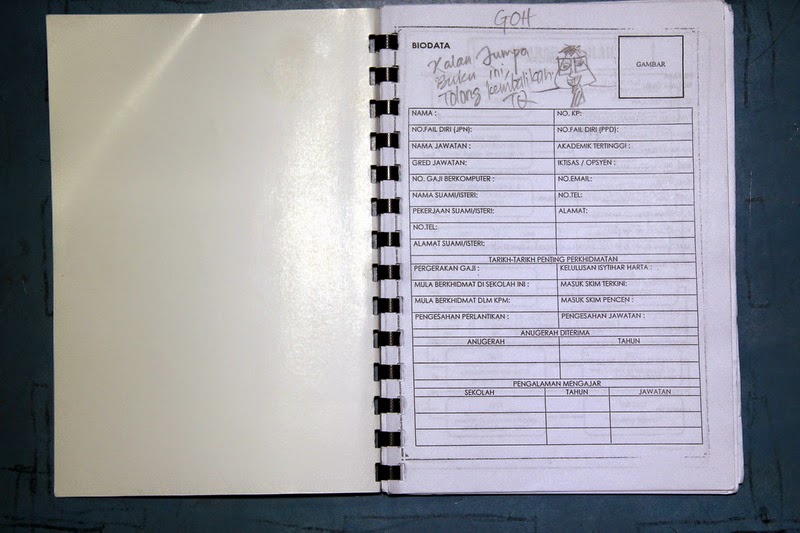 GOH
BIODATA
Kalau Jumpa
Buku ini,
Tolong kembalikan
TQ
GAMBAR
NAMA : NO. KP:
NO.FAIL DIRI (JPN): NO.FAIL DIRI (PPD):
NAMA JAWATAN : AKADEMIK TERTINGGI :
GRED JAWATAN: IKTISAS / OPSYEN :
NO. GAJI BERKOMPUTER : NO.EMAIL:
NAMA SUAMI/ISTERI: NO.TEL:
PEKERJAAN SUAMI/ISTERI: ALAMAT:
NO.TEL:
ALAMAT SUAMI/ISTERI:
TARIKH-TARIKH PENTING PERKHIDMATAN
PERGERAKAN GAJI : KELULUSAN ISYTIHAR HARTA :
MULA BERKHIDMAT DI SEKOLAH INI : MASUK SKIM TERKINI:
MULA BERKHIDMAT DLM KPM: MASUK SKIM PENCEN :
PENGESAHAN PERLANTIKAN : PENGESAHAN JAWATAN :
ANUGERAH DITERIMA
ANUGERAH TAHUN
PENGALAMAN MENGAJAR
SEKOLAH TAHUN JAWATAN